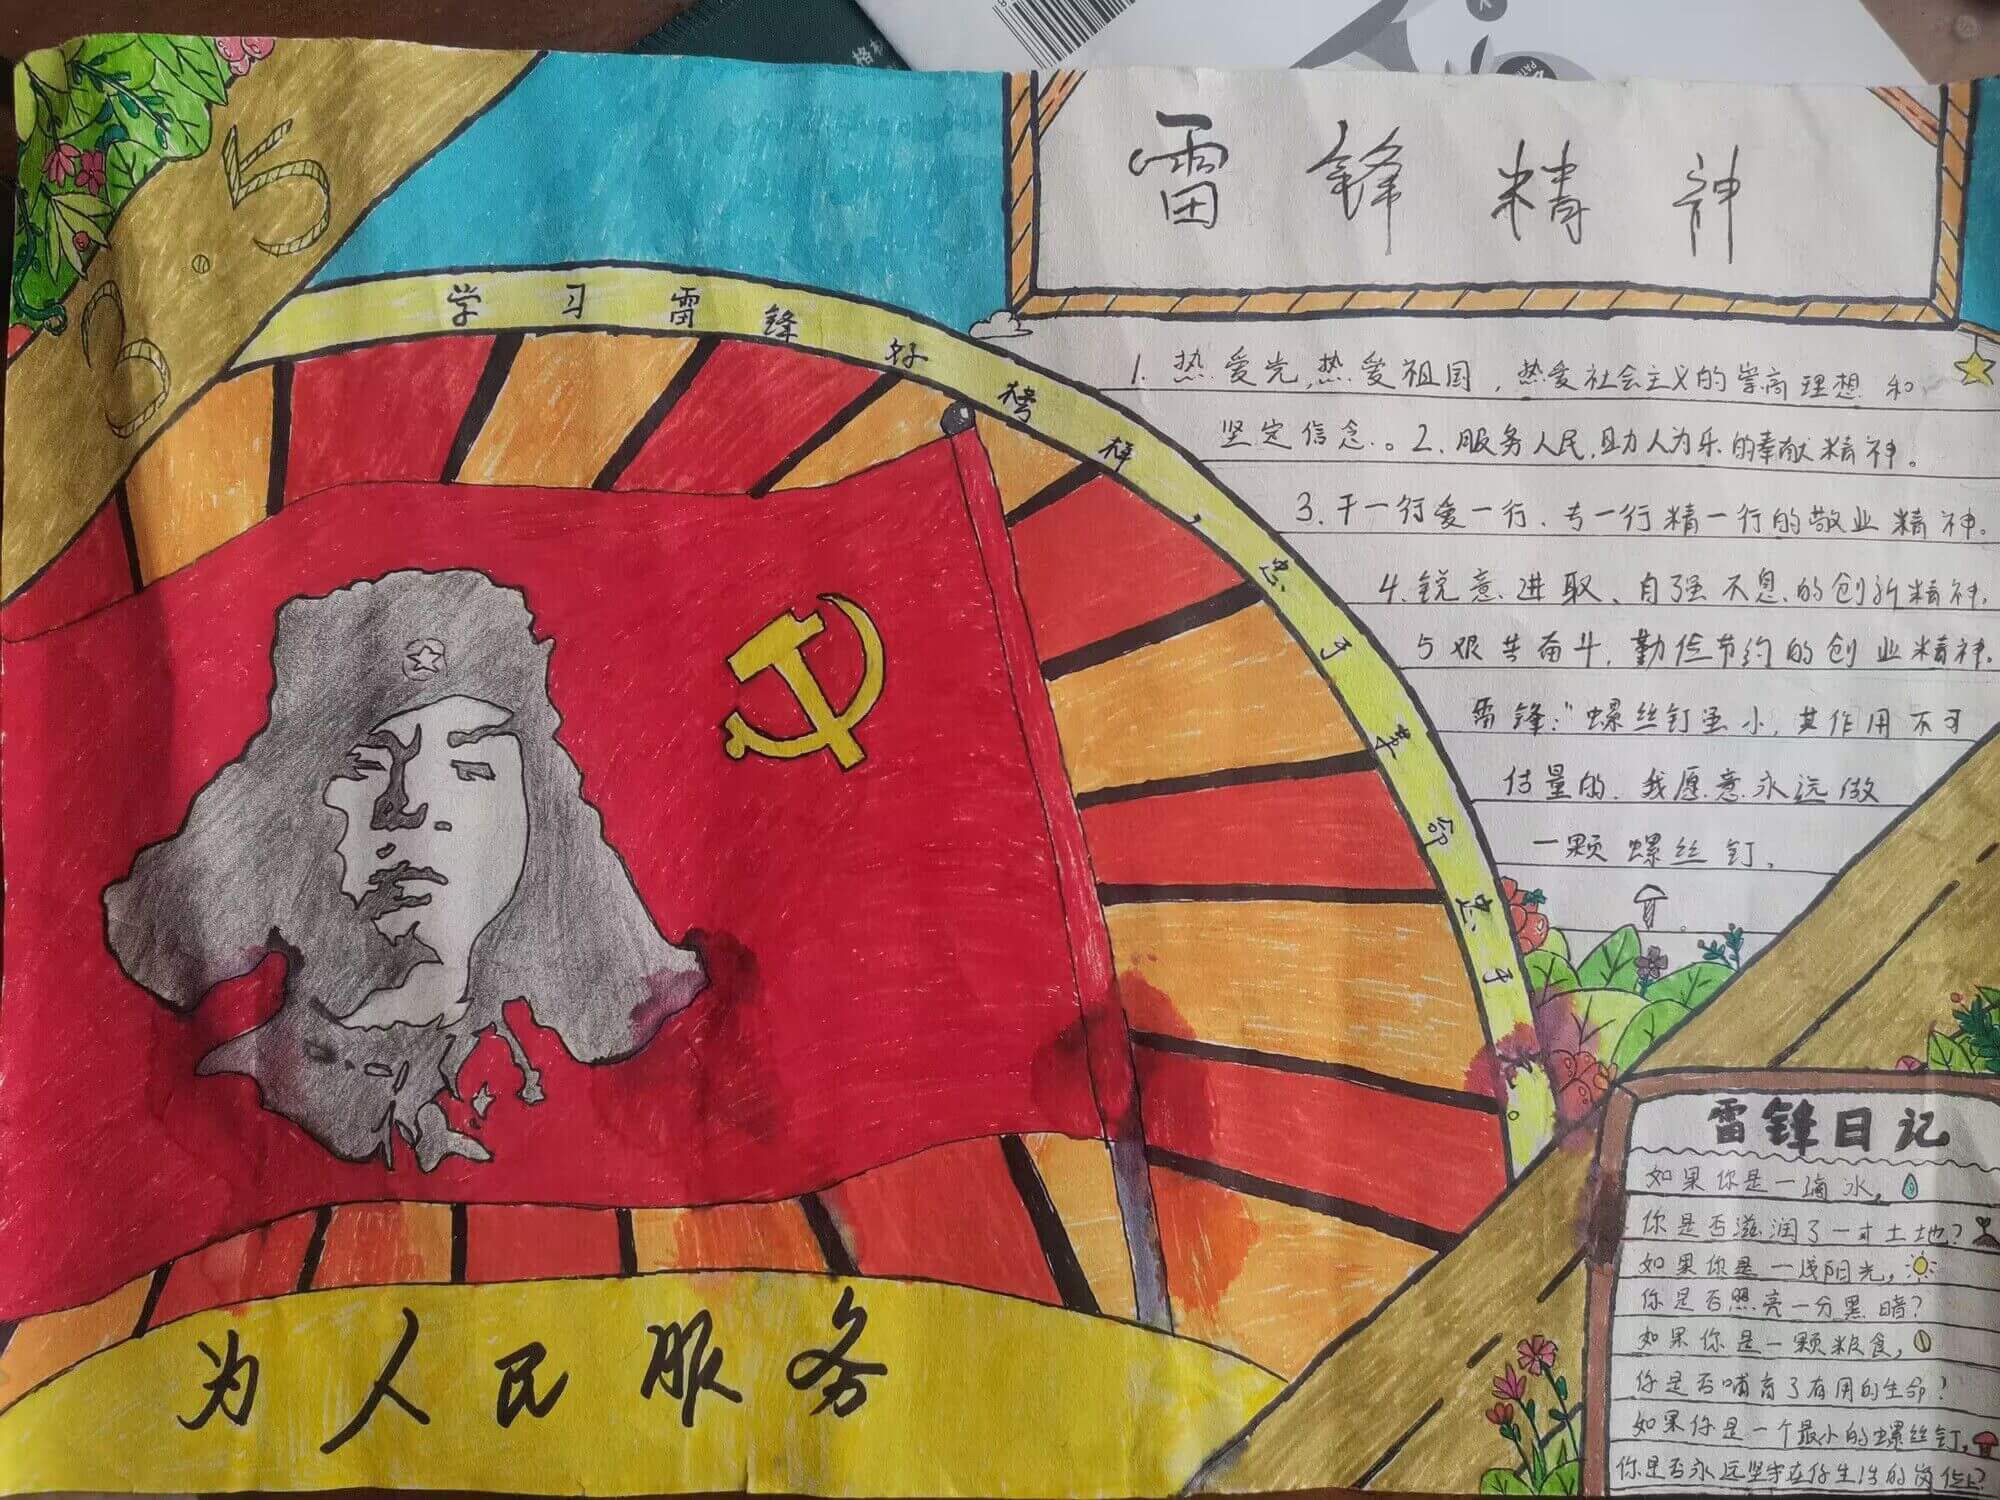 3.5
雷锋精神
学习雷锋好榜样，忠于革命忠于
1.热爱党,热爱祖国,热爱社会主义的崇高理想和
坚定信念。2.服务人民,助人为乐的奉献精神。
3.干一行爱一行、专一行精一行的敬业精神。
4.锐意进取、自强不息的创新精神.
5艰苦奋斗,勤俭节约的创业精神.
雷锋:"螺丝钉虽小,其作用不可
估量的.我愿意永远做
一颗螺丝钉.
雷锋日记
如果你是一滴水,
你是否滋润了一寸土地?
如果你是一线阳光,
你是否照亮一分黑暗?
如果你是一颗粮食,
你是否哺育了有用的生命?
如果你是一个最小的螺丝钉,
你是否永远坚守在你生活的岗位上?
为人民服务